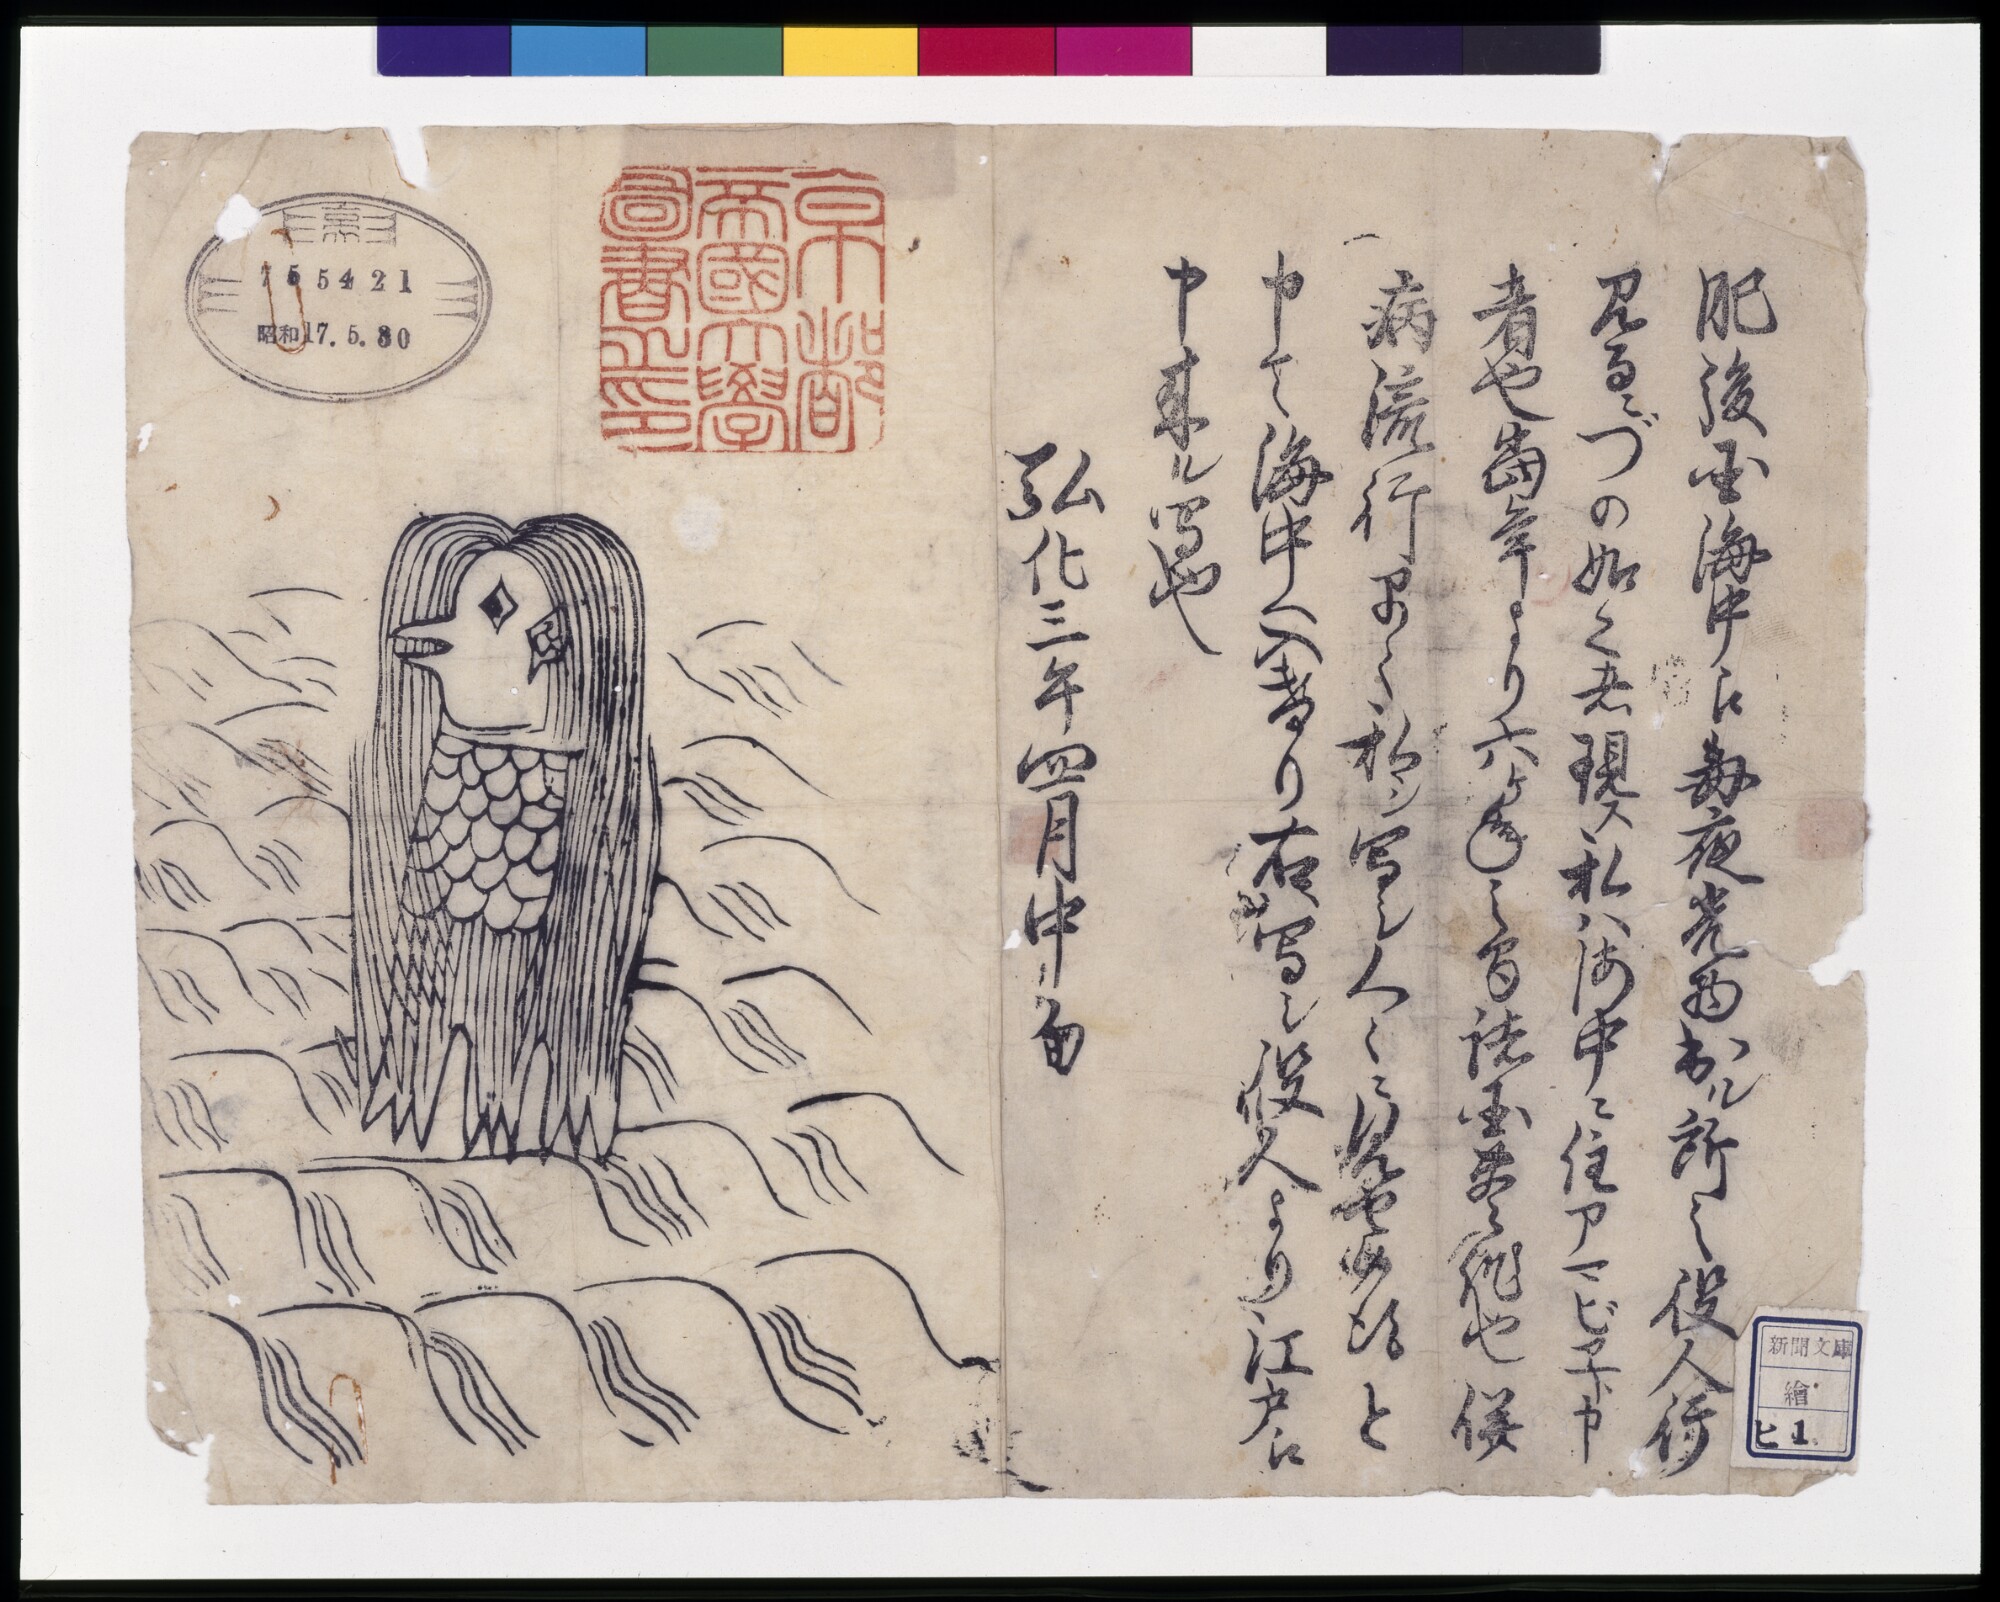 肥後国海中え毎夜光物出ル所之役人行
見るニづの如く者現ス私ハ海中ニ住アマビヱト申
者也當年より六ヶ年之間諸国豊作也併
病流行早々私シ写シ人々ニ見せ候得と
申て海中へ入けり右写シ役人より江戸え
申来ル写也
弘化三年四月中旬
京都
帝國大學
圖書之印
755421
昭和17.5.30
新聞文庫
繪
ヒ 1